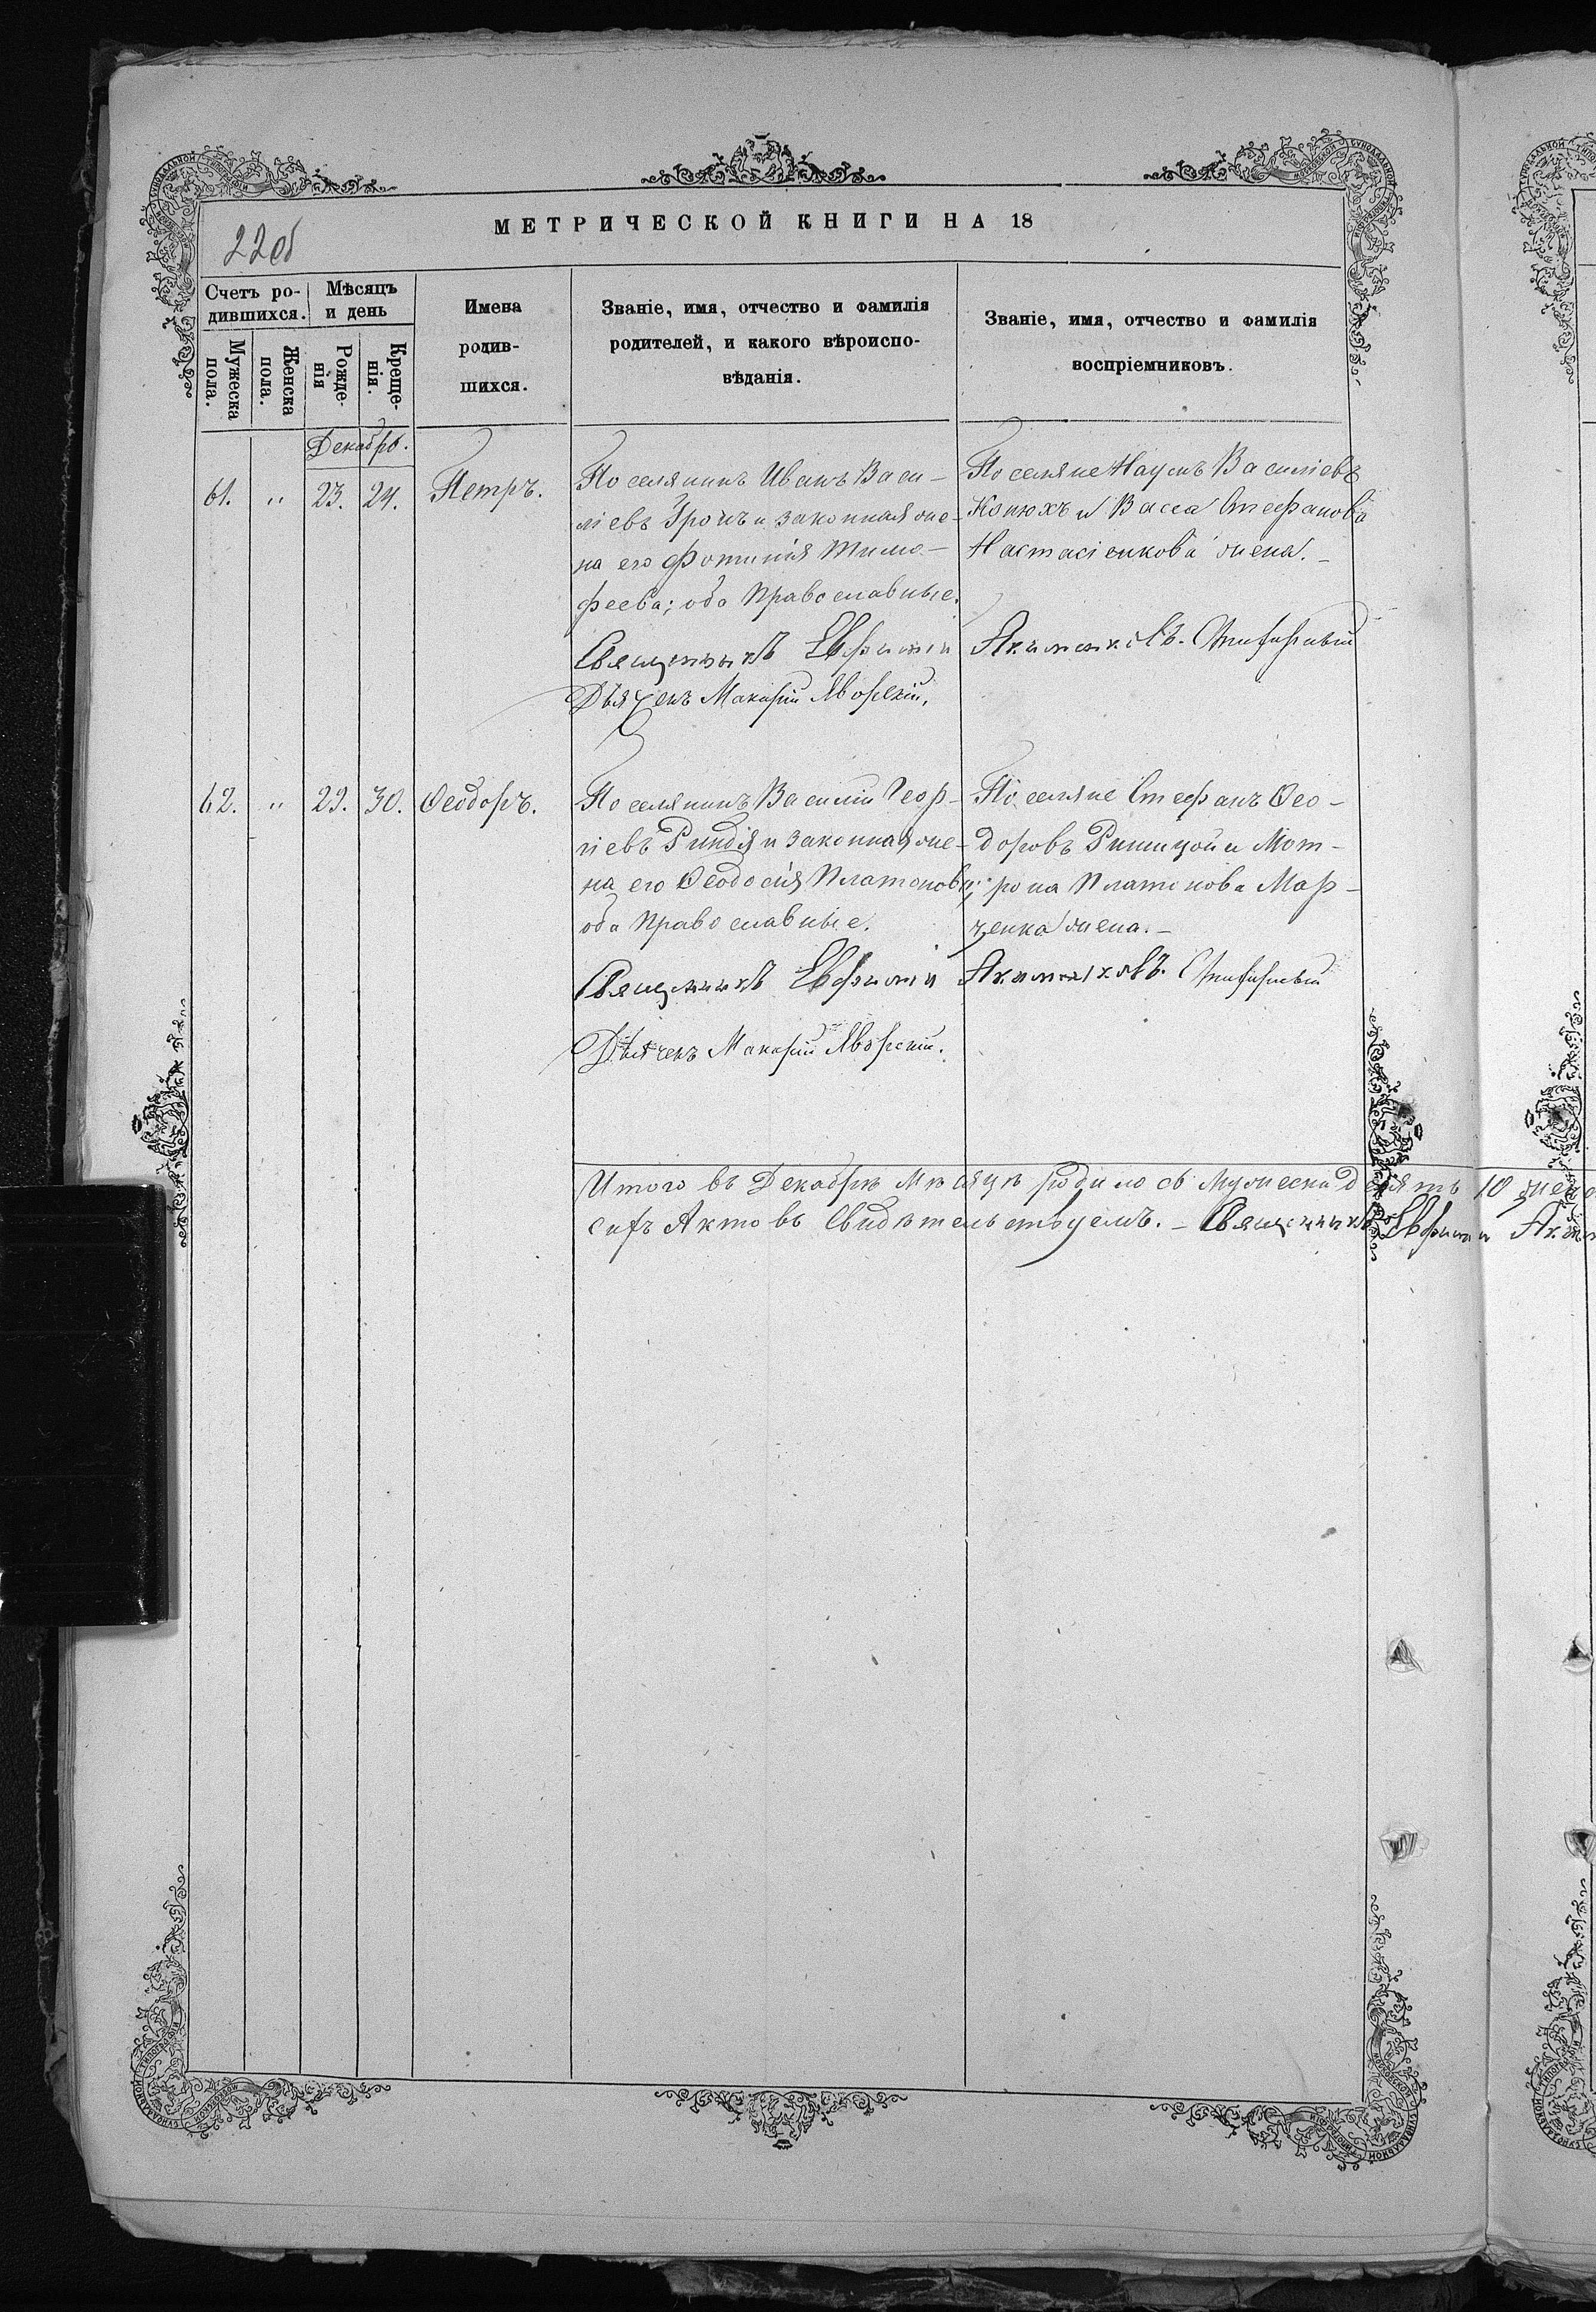 22об
МЕТРИЧЕСКОЙ КНИГИ НА 18
Счетъ ро-
дившихся.
Мѣсяцъ
и день
Мужеска
пола.
Женска
пола.
Рожде-
нія
Креще-
нія.
Имена
родив-
шихся.
Званіе, имя, отчество и фамилія
родителей, и какого вѣроиспо-
вѣданія.
Званіе, имя, отчество и фамилія
воспріемниковъ.
Декабрь.
61. „ 23. 24. Петръ.
Поселянинъ Иванъ Васи-
ліевъ и законная же-
на его Фотинія Тимо-
феева; оба Православные.
Священникъ Евфимій
Дьячекъ Макарій Яворскій.
Поселяне Наумъ Василіевъ
Конюхъ и Васса Стефанова
Настасіенкова жена.-
62. „ 29. 30. Ѳеодоръ.
Поселянинъ Василій Геор-
гіевъ Риндія и законная же-
на его Ѳеодосія Платонова;
оба Православные.
Священникъ Евфимій
Дьячекъ Макарій Яворскій.
Поселяне Стефанъ Ѳео-
доровъ и Мот-
рона Платонова Мар-
ченка жена.-
Итого въ Декабрѣ Мѣсяцѣ родилось Мужеска десять 10
Актовъ Свидѣтельствуемъ.- Священникъ Евфимій